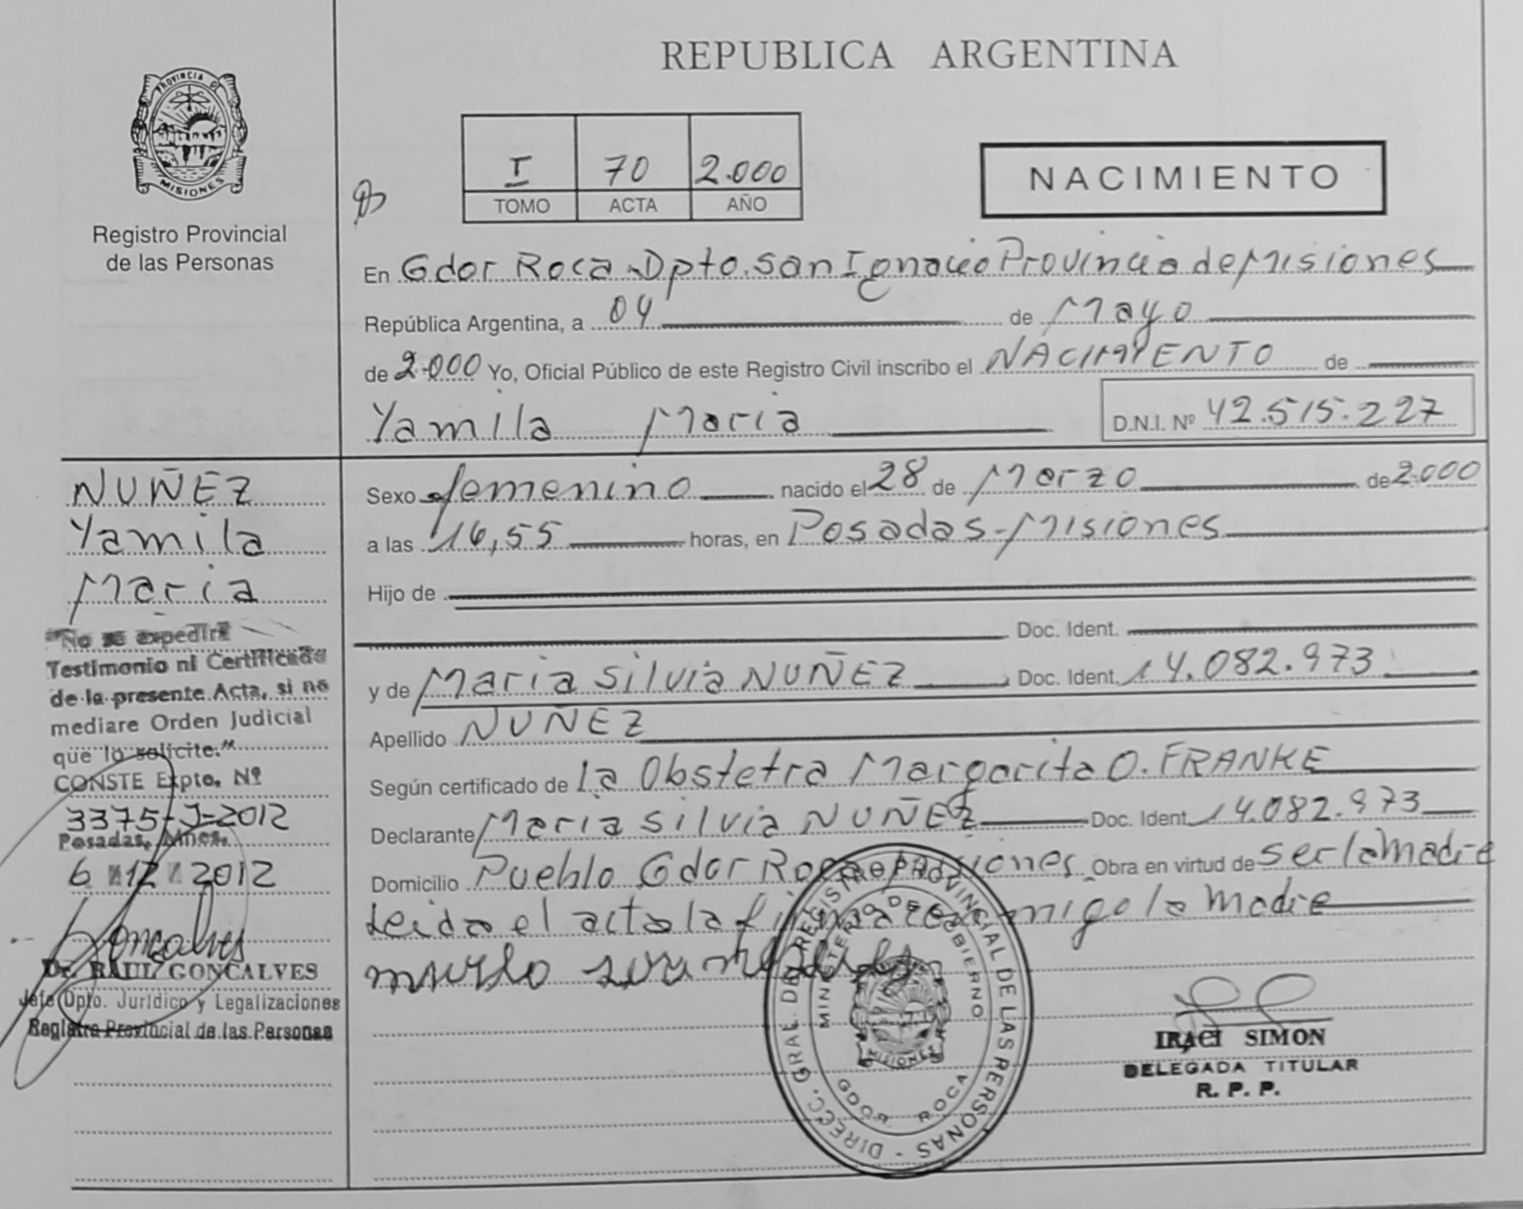 REPUBLICA ARGENTINA
PROVINCIA DE
MISIONES
Registro Provincial
de las Personas
I 70 2.000
TOMO ACTA AÑO
NACIMIENTO
En Gdor Roca Dpto. San Ignacio Provincia de Misiones
República Argentina, a 04 de Mayo
de 2.000 Yo, Oficial Público de este Registro Civil inscribo el NACIMIENTO de
Yamila Maria D.N.I. Nº 42.515.227
NUÑEZ
Yamila
Maria
"No se expedirá
Testimonio ni Certificado
de la presente Acta, si no
mediare Orden Judicial
que lo solicite."
CONSTE Expto. Nº
3375-J-2012
Posadas, Mnes.
6 12 2012
Goncalves
Dr. RAUL GONCALVES
Jefe Dpto. Jurídico y Legalizaciones
Registro Provincial de las Personas
Sexo femenino nacido el 28 de Marzo de 2.000
a las 16,55 horas, en Posadas-Misiones
Hijo de
Doc. Ident.
y de Maria Silvia NUÑEZ Doc. Ident. 14.082.973
Apellido NUÑEZ
Según certificado de la Obstetra Margarita O. FRANKE
Declarante Maria Silvia NUÑEZ Doc. Ident. 14.082.973
Domicilio Pueblo Gdor Roca Misiones Obra en virtud de ser la Madre
Leida el acta la firma conmigo la Madre
DIRECC. GRAL. DE REGISTRO PROVINCIAL DE LAS PERSONAS -
MINISTERIO DE GOBIERNO
MISIONES
GDOR. ROCA
IRACI SIMON
DELEGADA TITULAR
R. P. P.